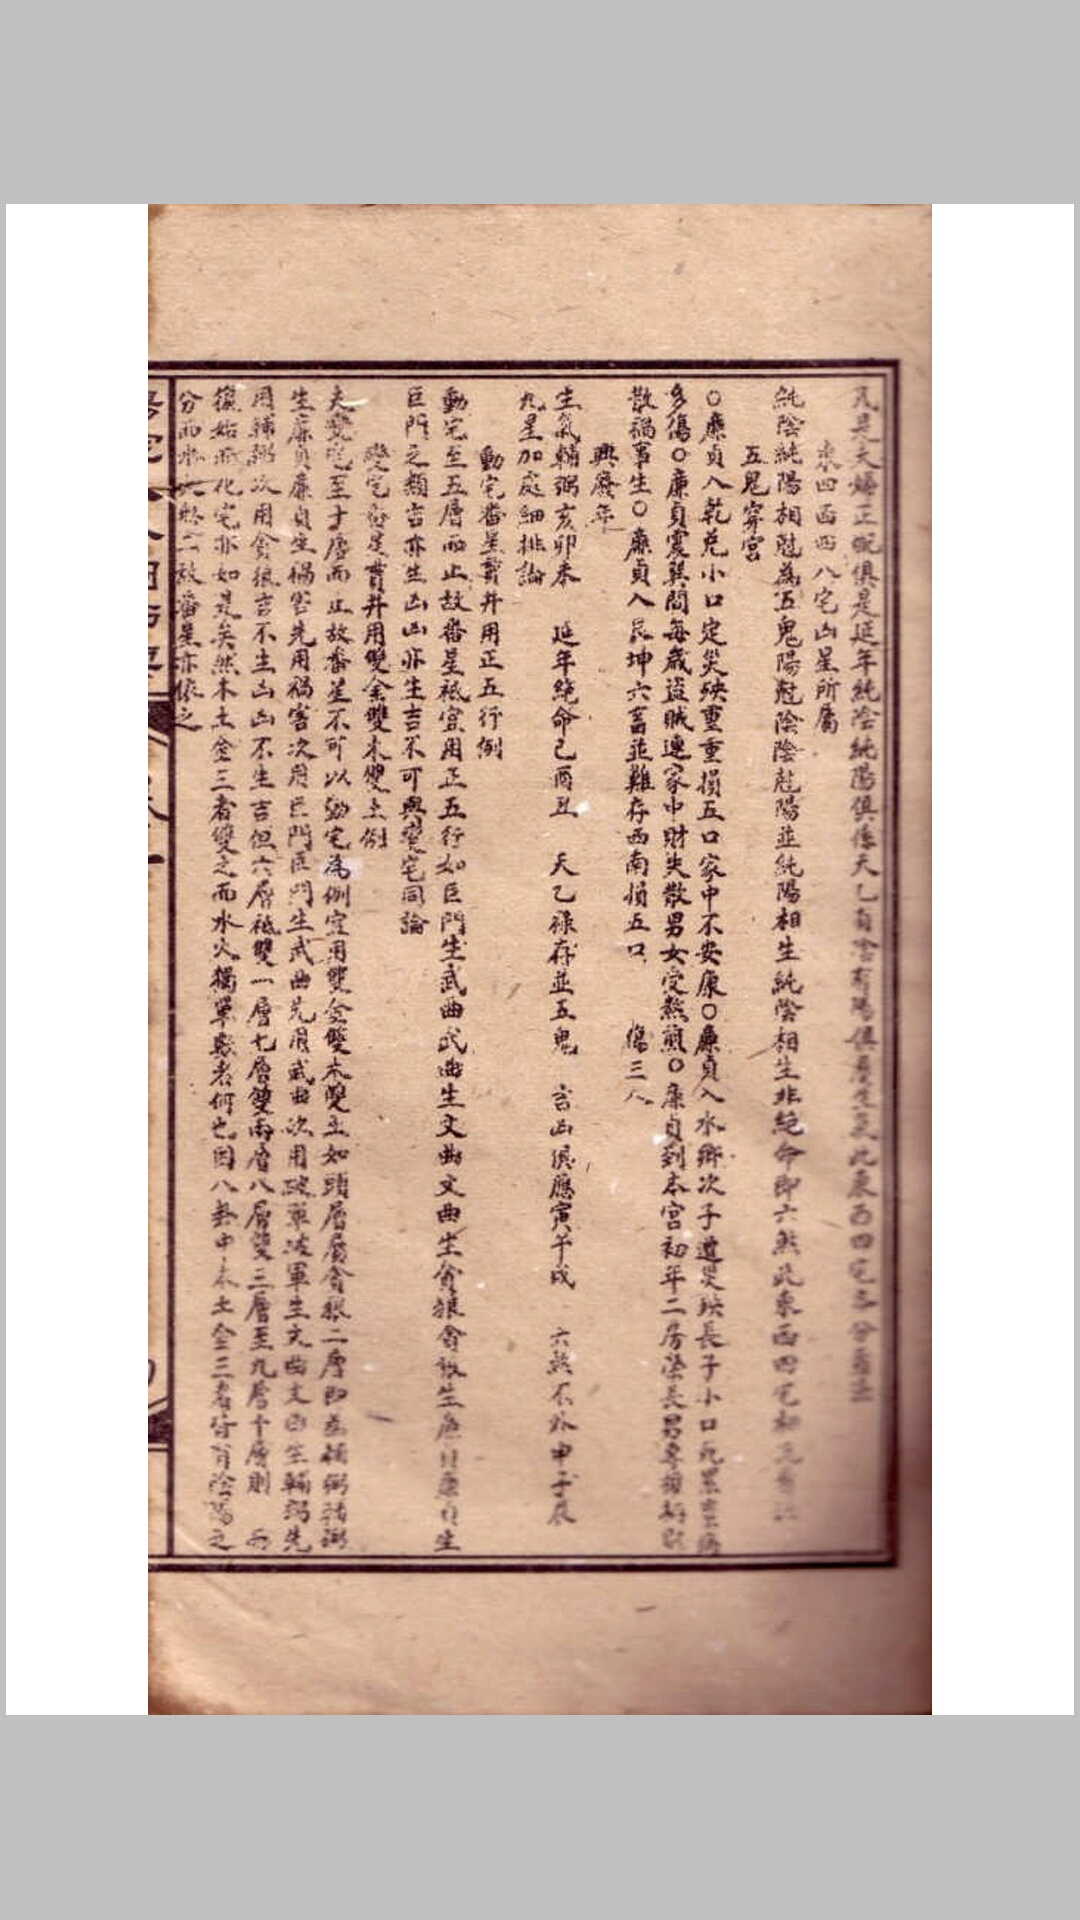 凡是夫婦正配俱是延年純陰純陽俱係天乙有陰有陽俱是生氣此東西四宅各分看法
東四西四八宅凶星所屬
純陰純陽相尅為五鬼陽尅陰陰尅陽並純陽相生純陰相生非絕命即六煞此東西四宅相
五鬼穿宮
○廉貞入乾兌小口定災殃重重損五口家中不安康○廉貞入水鄉次子遭災殃長子小口
多傷○廉貞震巽間每歲盜賊連家中財失散男女受熬煎○廉貞到本宮初年二房榮長男
散禍事生○廉貞入艮坤六畜並難存西南損五口 傷三人
興廢年
生氣輔弼亥卯未 延年絕命巳酉丑 天乙祿存並五鬼 吉凶俱應寅午戌 六煞不外申子辰
九星加處細推論
動宅番星貫井用正五行例
動宅至五層而止故番星祗宜用正五行如巨門生武曲武曲生文曲文曲生貪狼貪狼生廉貞廉貞生
巨門之類吉亦生凶凶亦生吉不可與變宅同論
變宅番星貫井用雙金雙木雙土例
夫變宅至十層而止故番星不可以動宅為例宜用雙金雙木雙土如頭層屬貪狼二層即為輔弼輔弼
生廉貞廉貞生禍害先用禍害次用巨門巨門生武曲先用武曲次用破軍破軍生文曲文曲生輔弼先
用輔弼次用貪狼吉不生凶凶不生吉但六層祗雙一層七層雙兩層八層雙三層至九層十層則 而
復始而化宅亦如是矣然木土金三者雙之而水火獨單數者何也因八卦中木土金三者皆有陰陽之
分而水火 故番星亦依之